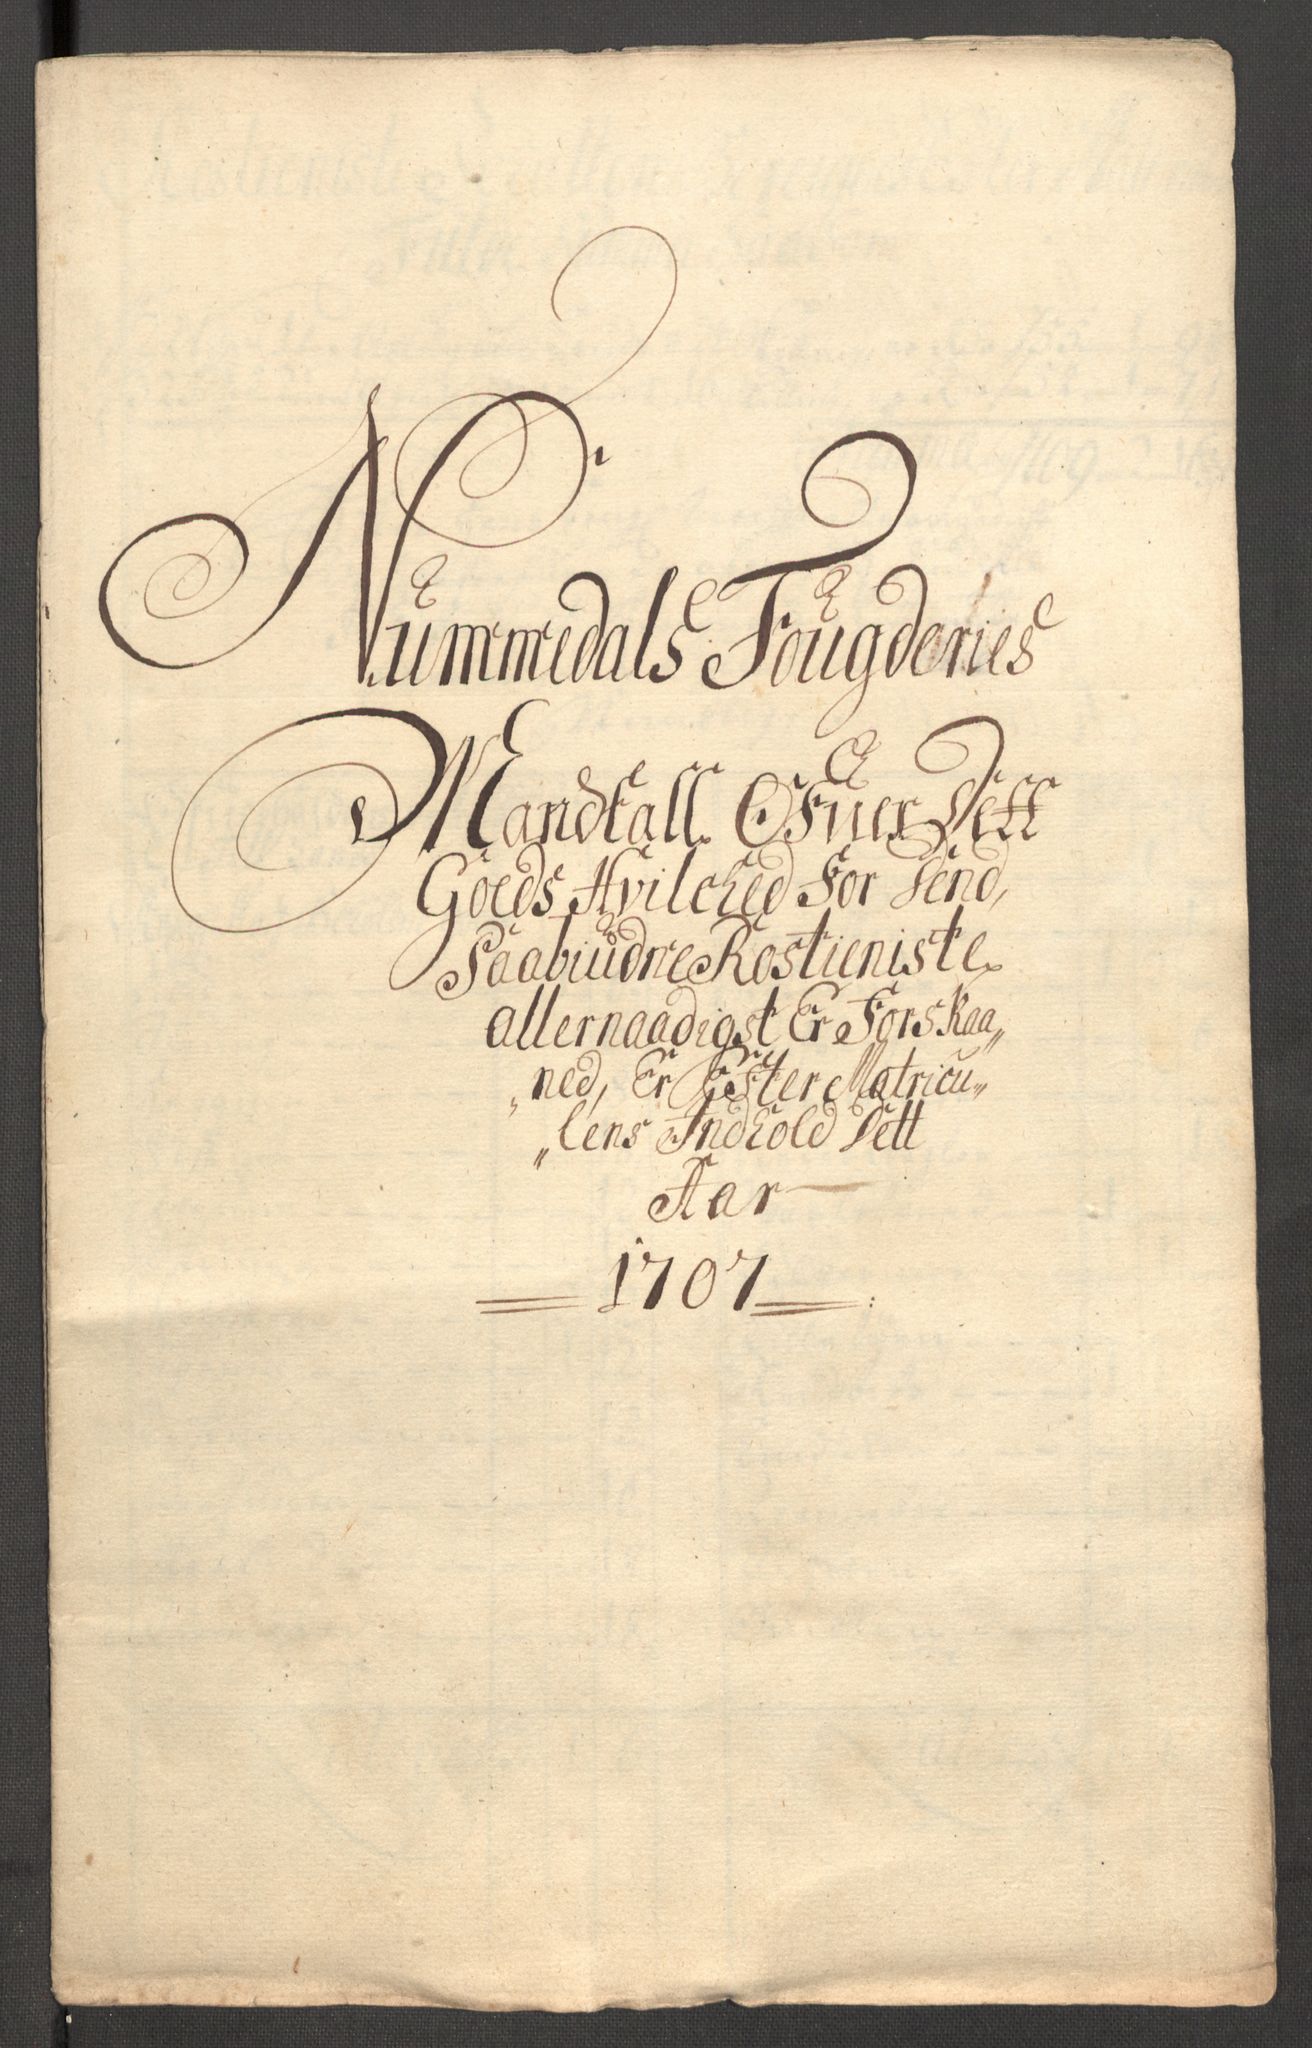 Nummedals Fougderies
Mandtall Ofver Dett
Goeds Hvilched For Dend,
Paabiudne Rostieniste
allernaadigst Er Forskaa„
„ned, Er Effter Matricu„
„lens Indhold Dett
Aar
1707